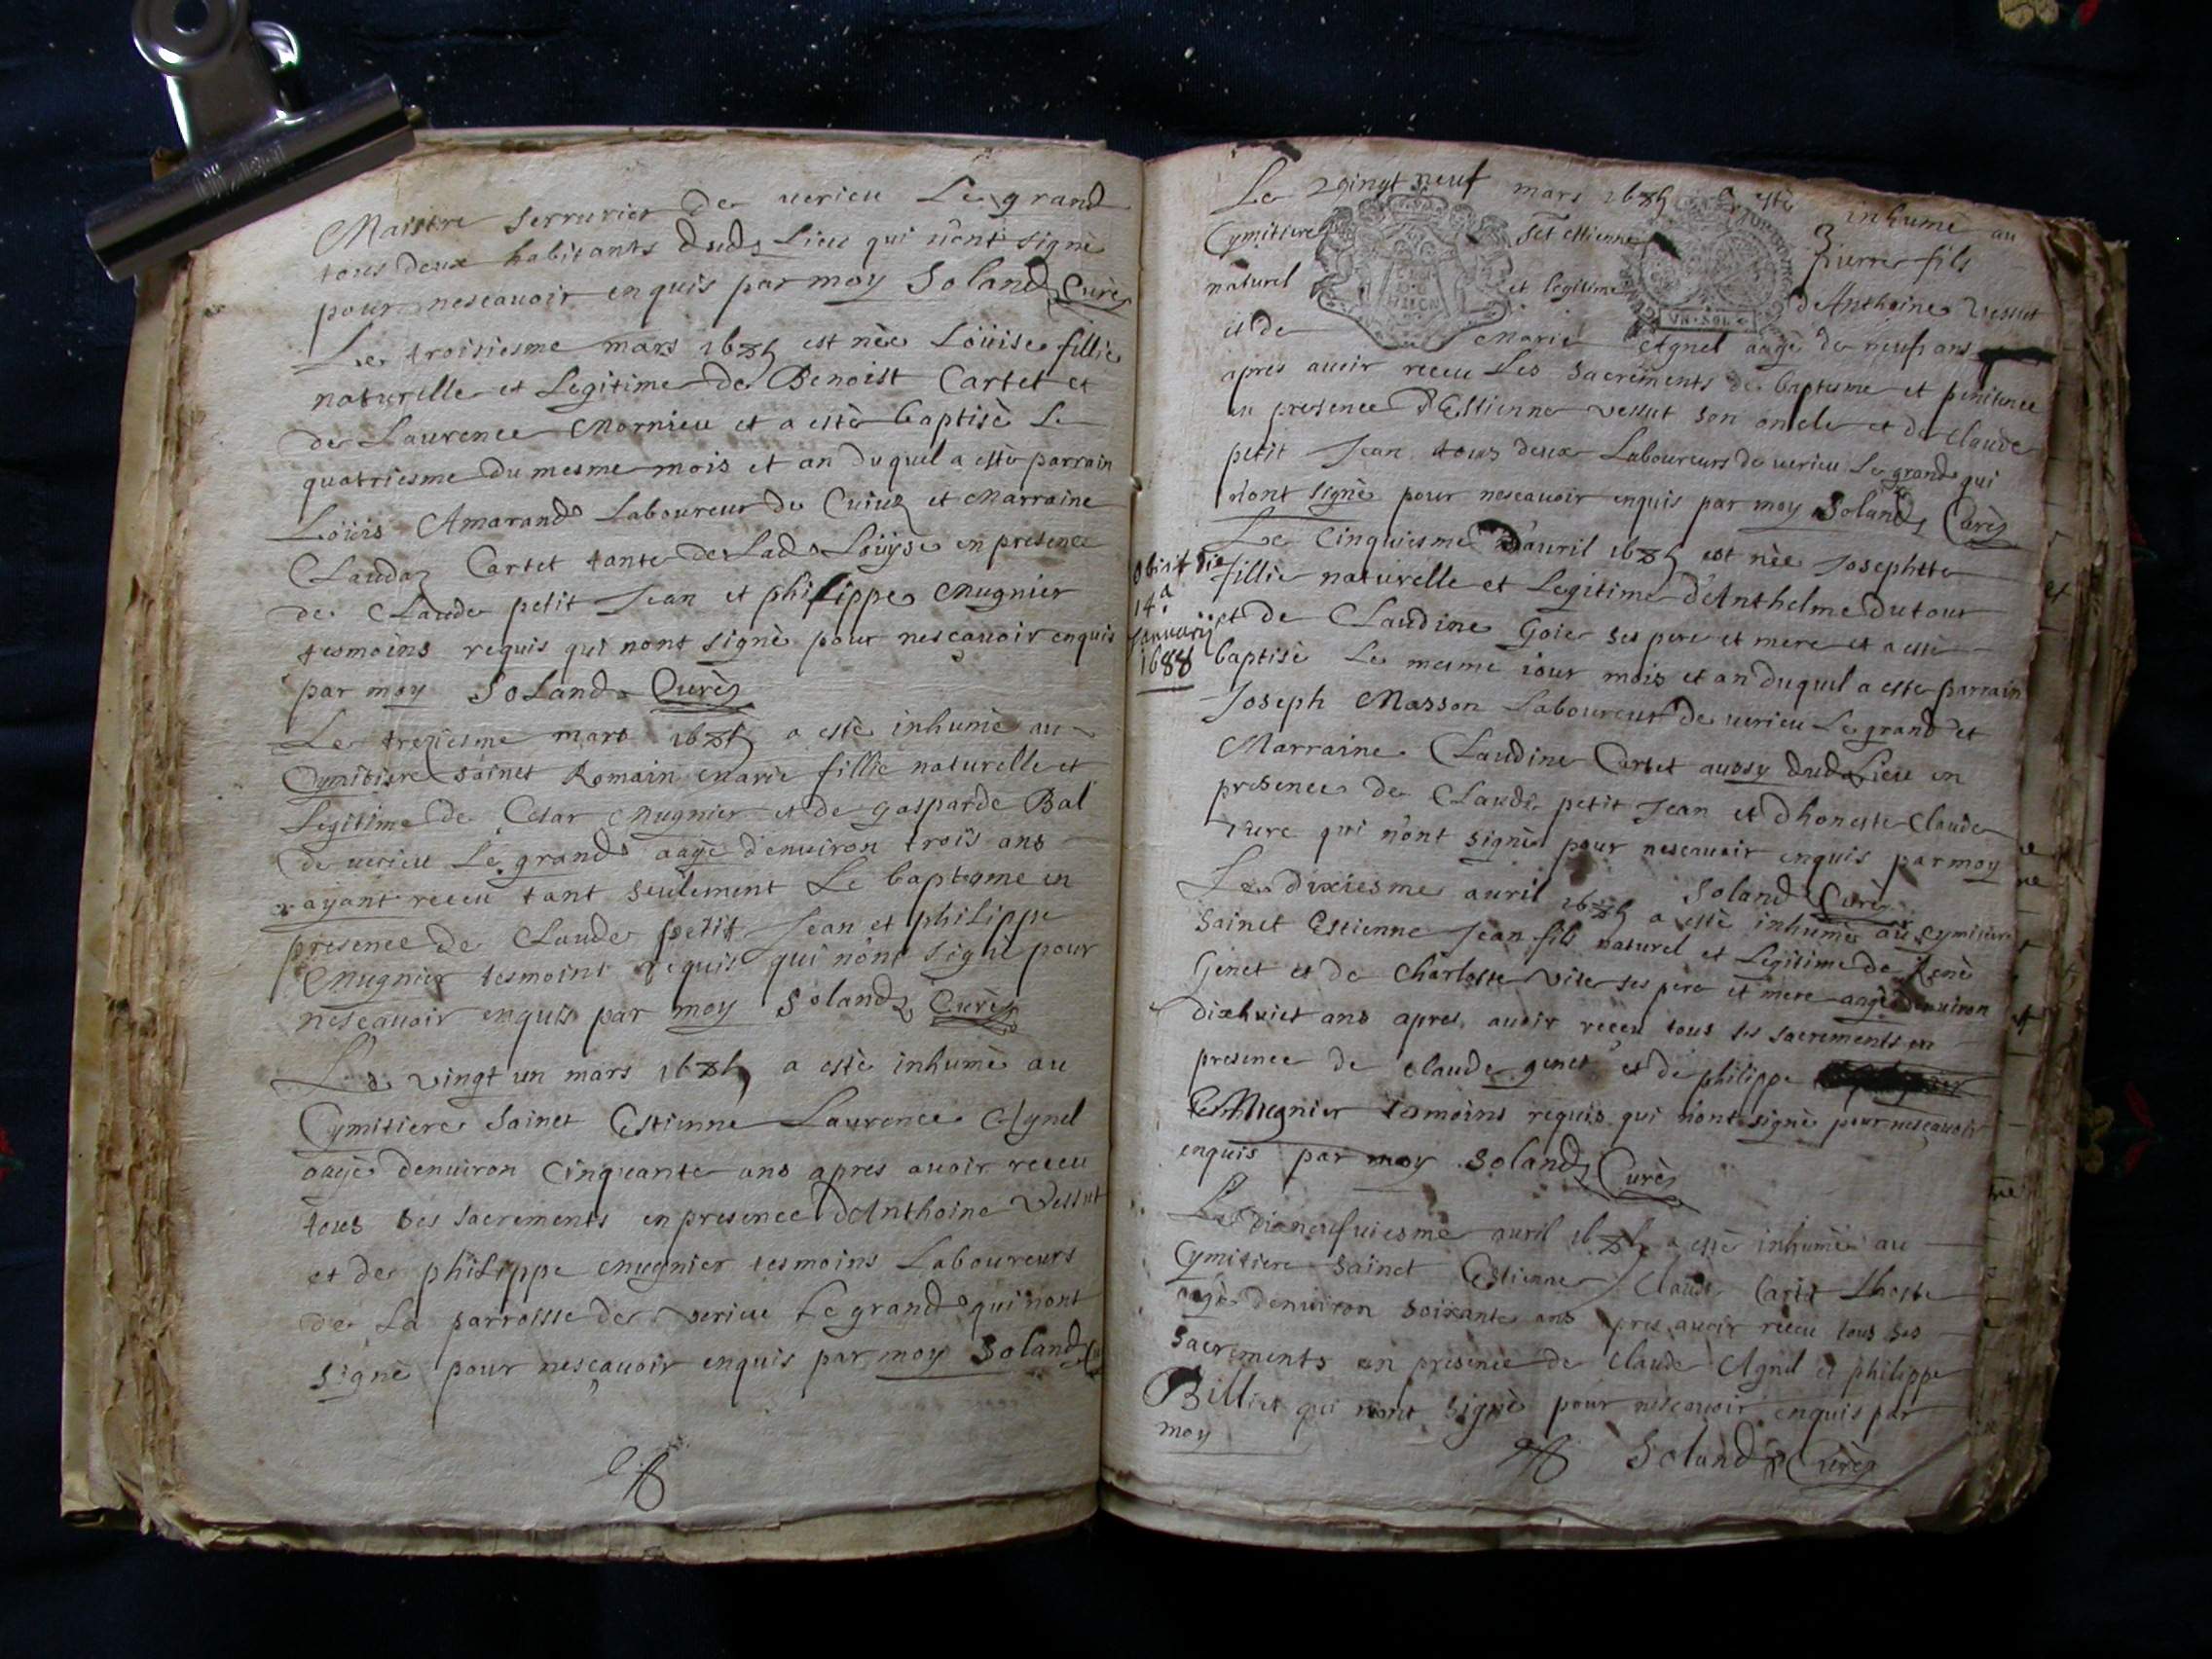 Maistre serrurier de verieu Le grand
tous deux habitants dud Lieu qui n'ont signè
pour nescavoir enquis par moy Soland Curè
Le troisiesme mars 1685 est nèe Loüise fillie
naturelle et Legitime de Benoist Cartet et
de Laurence Mornieu et a estè baptisè Le
quatriesme du mesme mois et an duquel a estè parrain
Loüis Amarand Laboureur de et Marraine
Clauda Cartet tante de Lad Loüyse en presence
de Claude petit Jean et philippe Mugnier
tesmoins requis qui nont signè pour nescavoir enquis
par moy Soland Curè
Le treziesme mars 1685 a estè inhumè au
Cymitiere sainct Romain Marie fillie naturelle et
Legitime de Cesar Mugnier et de gasparde Bal
de verieu Le grand aagè d'environ trois ans
ayant receu tant seulement Le baptesme en
presence de Claude petit Jean et philippe
Mugnier tesmoint requis qui n'ont signè pour
nescavoir enquis par moy Soland Curè
Le vingt un mars 1685 a estè inhumè au
Cymitiere sainct Estienne Laurence Agnel
aagè denviron Cinquante ans apres avoir receu
tous ses sacrements en presence d'Anthoine Vessut
et de philippe Mugnier tesmoins Laboureurs
de La parroisse de verieu Le grand qui nont
signè pour nesçavoir enquis par moy Soland
Le vingt neuf mars 1685 a estè inhumè au
Cymitiere sct estienne pierre fils
naturel et legitime d'Anthoine Vessut
et de Marie Agnel aagè de neuf ans
VN·SOL
apres avoir receu Les sacrements de baptesme et penitence
en presence d'Estienne vessut son oncle et de Claude
petit Jean tous deux Laboureurs de verieu Le grand qui
n'ont signè pour nescavoir enquis par moy Soland Curè
Le Cinquiesme d'avril 1685 est nèe Josephte
obiit die
fillie naturelle et Legitime d'Anthelme Dutour
14a
et de Claudine Goier ses pere et mere et a estè
januarij
baptisè Le mesme iour mois et an duquel a este parrain
1688
Joseph Masson Laboureur de verieu Le grand et
Marraine Claudine Cartet aussy dud Lieu en
presence de Claude petit Jean et d'honeste Claude
qui n'ont signè pour nescavoir enquis par moy
Soland Curè
Le dixiesme avril 1685 a estè inhumè au cymitiere
sainct Estienne Jean fils naturel et Legitime de Renè
Genet et de Charlotte ses père et mere aagè denviron
dixhuict ans apres avoir reçeu tous ses sacrements en
presence de Claude genet et de philippe
Mugnier tesmoins requis qui n'ont signè pour nesçavoir
enquis par moy Soland Curè
Le dixneufuiesme avril 1685 a estè inhumè au
Cymitiere sainct Estienne Claude Lhoste
aagè denviron soixante ans apres avoir receu tous ses
sacrements en presence de Claude Agnel et philippe
Billiet qui n'ont signè pour nescavoir enquis par
moy
Soland Curè